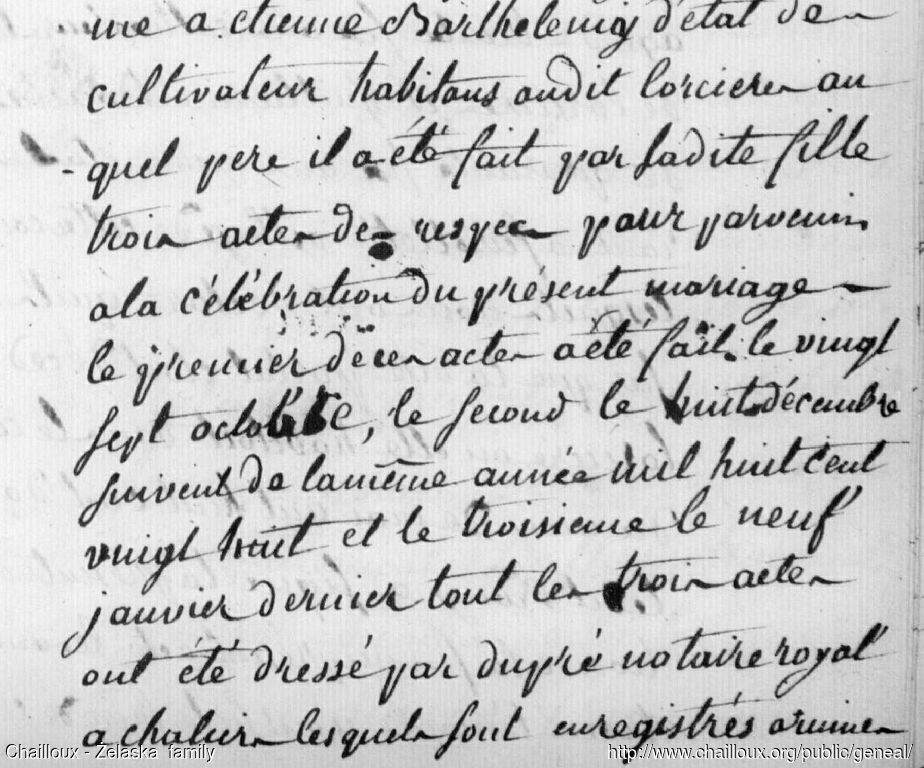 me a etienne Barthelemy d'état de
cultivateur habitans audit lorcieres au
quel pere il a été fait par sadite fille
trois actes de respec pour parvenir
a la célébration du présent mariage
le premier de ces actes a été fait le vingt
sept octobre, le second le huit décembre
suivent de la même année mil huit cent
vingt huit et le troisieme le neuf
janvier dernier tout les trois actes
ont été dressé par dupré notaire royal
a chaliers lesquels sont enregistrés a ruines
Chailloux - Żelaska family
http://www.chailloux.org/public/geneal/